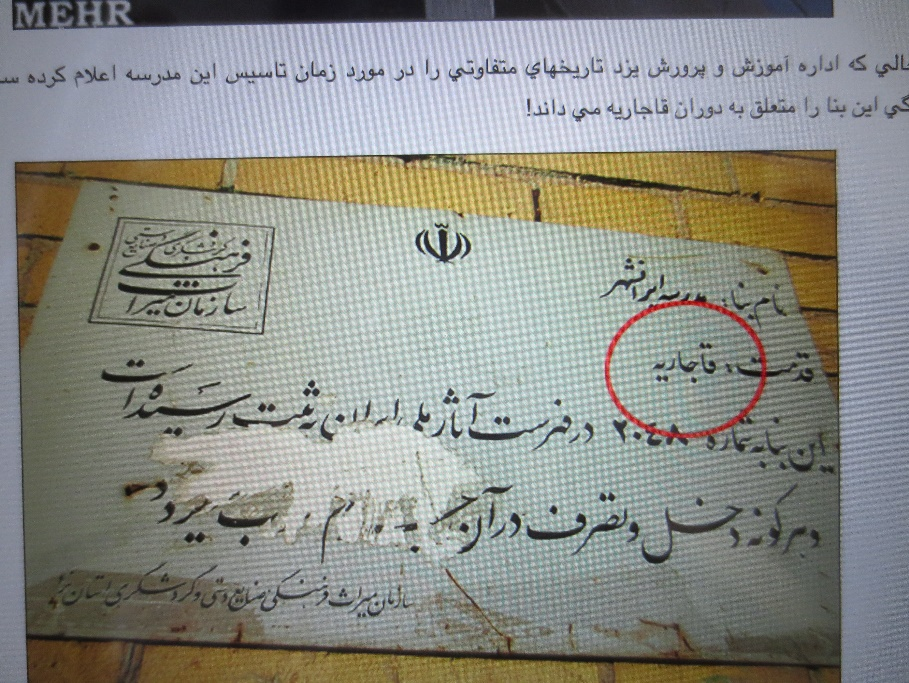 MEHR
الي كه اداره آموزش و پرورش يزد تاريخهاي متفاوتي را در مورد زمان تاسيس اين مدرسه اعلام كرده
گي اين بنا را متعلق به دوران قاجاريه مي داند!
سازمان میراث
فرهنگی
صنایع دستی
گردشگری
نام بنا: مدرسه ایرانشهر
قدمت: قاجاریه
این بنا به شماره در فهرست آثار ملی ایران به ثبت رسیده است
و هر گونه دخل و تصرف در آن
سازمان میراث فرهنگی صنایع دستی و گردشگری استان یزد